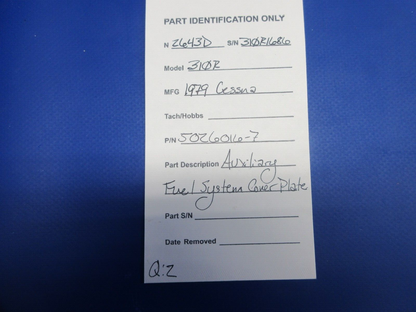 PART IDENTIFICATION ONLY
N 2643D S/N 310R1686
Model 310R
MFG 1979 Cessna
Tach/Hobbs
P/N 5026016-7
Part Description Auxiliary
Fuel System Cover Plate
Part S/N
Date Removed
Q:2